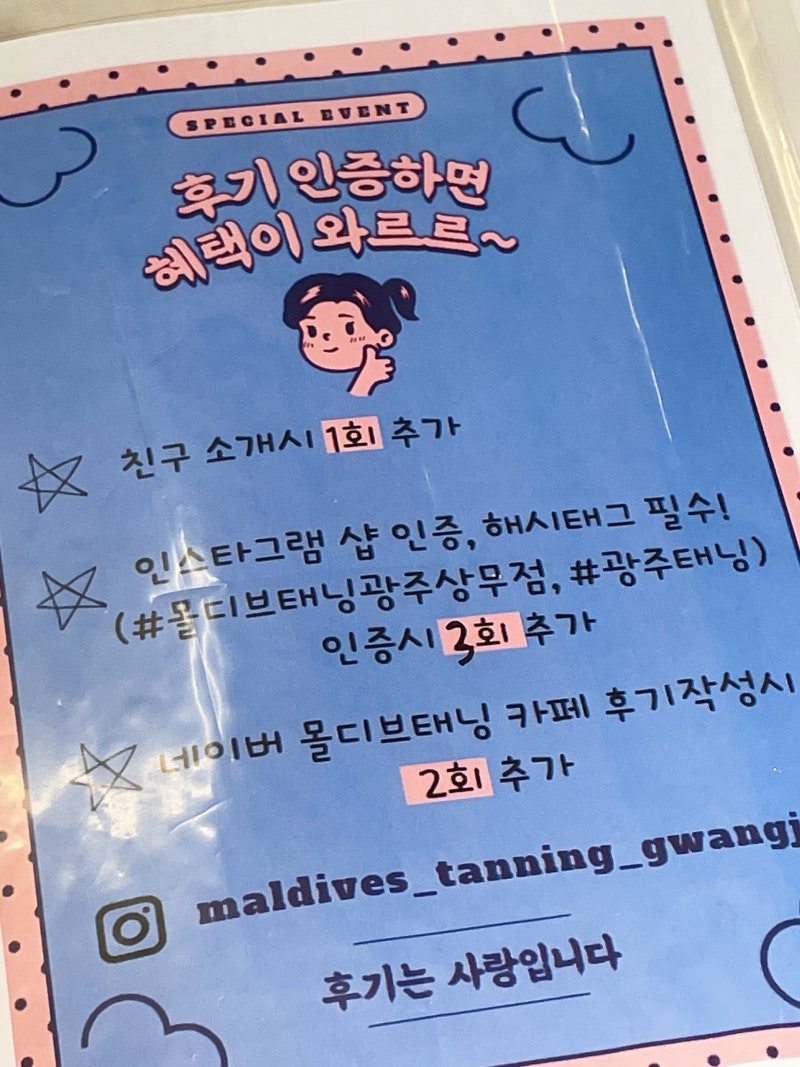 SPECIAL EVENT
후기 인증하면
혜택이 와르르~
친구 소개시 1회 추가
인스타그램 샵 인증, 해시태그 필수!
(#몰디브태닝광주상무점, #광주태닝)
인증시 3회 추가
네이버 몰디브태닝 카페 후기작성시
2회 추가
maldives_tanning_gwangj
후기는 사랑입니다